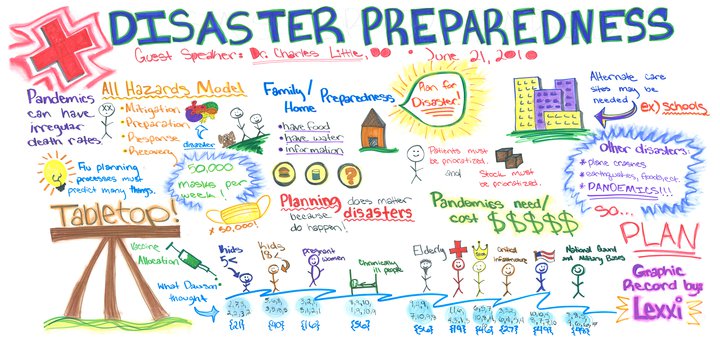 DISASTER PREPAREDNESS
Guest Speaker: Dr. Charles Little, DO • June 21, 2010
All Hazards Model
• Mitigation
• Preparation
• Response
• Recovery
disaster
Pandemics
can have
irregular
death rates.
Flu planning
processes must
predict many things.
50,000
masks per
week!
x 50,000!
Family/
Home Preparedness
• have food
• have water
• information
?
Plan for
Disaster!
Patients must
be prioritized.
and
Stock must
be prioritized.
Planning does matter
because disasters
do happen!
Pandemics need/
cost $$$$$
Alternate care
sites may be
needed
ex) schools
Other disasters:
* plane crashes
* earthquakes, floods, ect.
* PANDEMICS!!!
SO...
PLAN
Graphic
Record by:
Lexxi
Tabletop!
Vaccine
Allocation
What Dawson
thought
kids
5<
kids
18<
pregnant
women
Chronically
ill people
Elderly
Critical
infrastructure
National Guard
and Military Bases